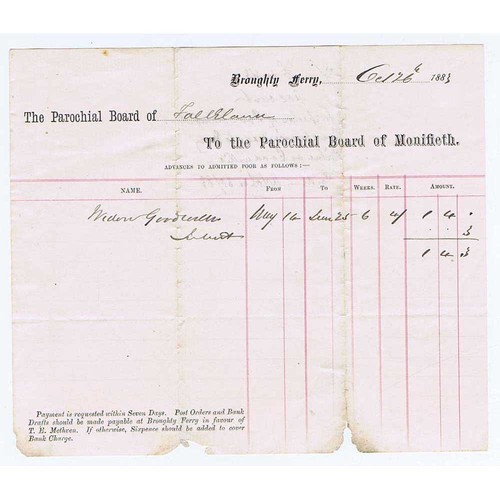 Broughty Ferry, Oct 26 1883
The Parochial Board of Falkland
To the Parochial Board of Monifieth.
ADVANCES TO ADMITTED POOR AS FOLLOWS:—
NAME. FROM TO WEEKS. RATE. AMOUNT.
Widow May 14 June 25 6 4/ 1 4 .
. . 3
1 4 3
Payment is requested within Seven Days. Post Orders and Bank
Drafts should be made payable at Broughty Ferry in favour of
T. E. Methven. If otherwise, Sixpence should be added to cover
Bank Charge.